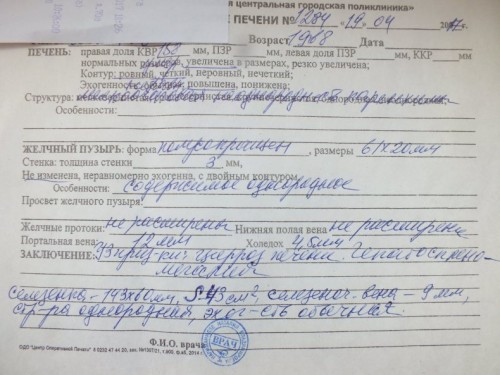 я центральная городская поликлиника»
Е ПЕЧЕНИ № 1284 «19» 04 2017г.
Возраст 1968 Дата
ПЕЧЕНЬ: правая доля КВР 158 мм, ПЗР мм, левая доля ПЗР мм, ККР мм
нормальных размеров, увеличена в размерах, резко увеличена;
Контур: ровный, четкий, неровный, нечеткий;
Эхогенность: обычная, повышена, понижена;
Структура:
Особенности:
ЖЕЛЧНЫЙ ПУЗЫРЬ: форма размеры 61х20мм
Стенка: толщина стенки 3 мм,
Не изменена, неравномерно эхогенна, с двойным контуром
Особенности: содержимое однородное
Просвет желчного пузыря:
Желчные протоки: не расширены Нижняя полая вена не расширена
Портальная вена: 12 мм Холедох 4,5мм
ЗАКЛЮЧЕНИЕ: УЗ приз-ки: цирроз печени. Гепатоспленомегалия
Селезенка - 143х60мм, S-43 см², селезеноч. вена - 9 мм,
стр-ра однородная, эхог-сть обычная.
Ф.И.О. врача
ВРАЧ